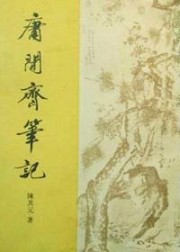 庸閒齋筆記
陳其元 著